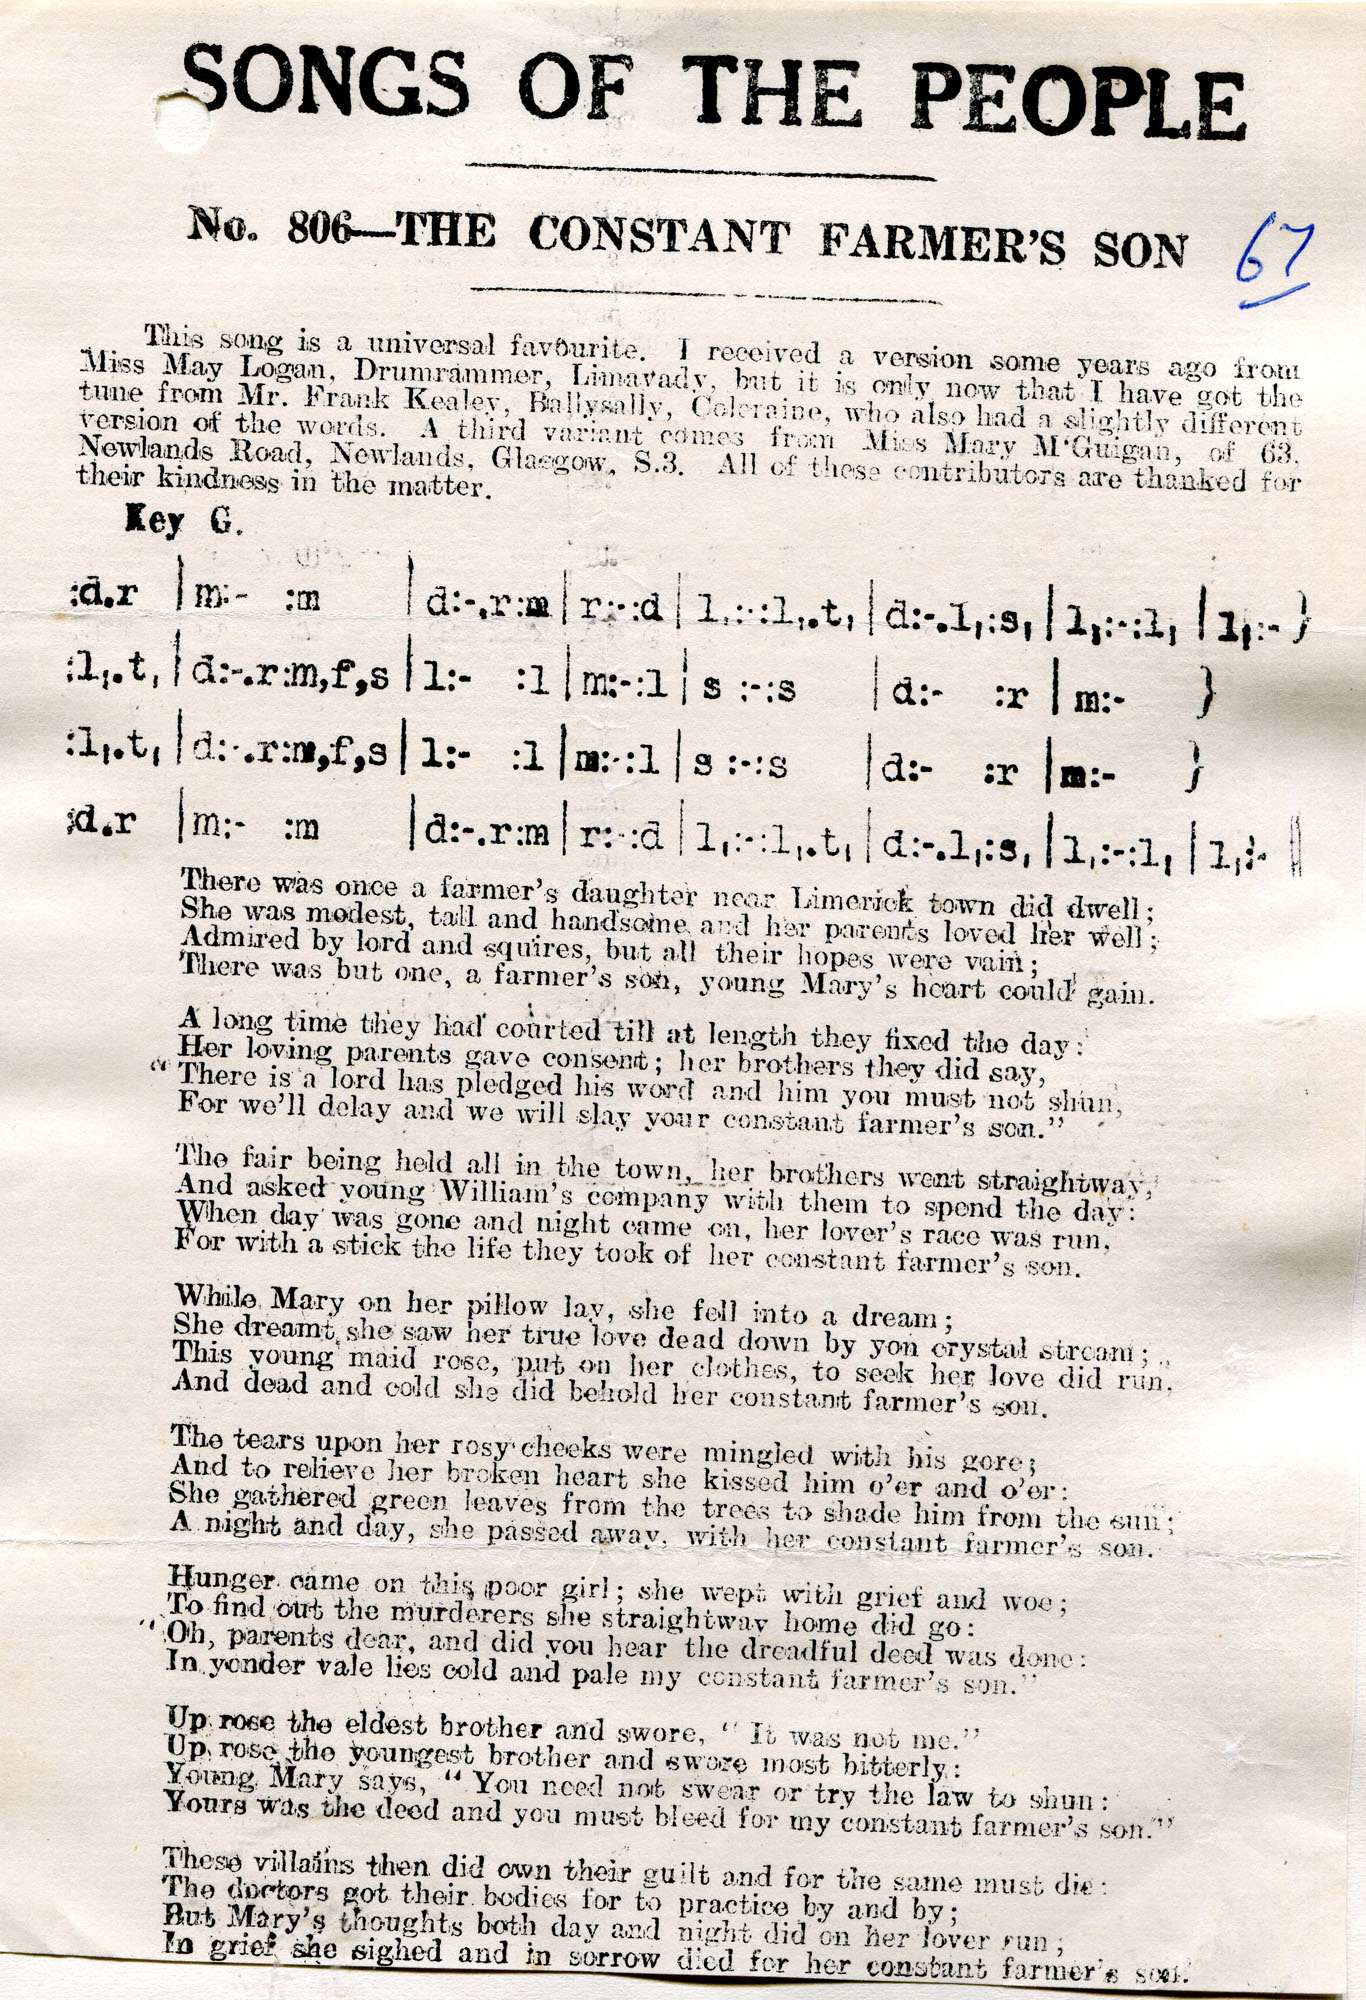 SONGS OF THE PEOPLE
No. 806—THE CONSTANT FARMER'S SON
67
This song is a universal favourite. I received a version some years ago from
Miss May Logan, Drumrammer, Limavady, but it is only now that I have got the
tune from Mr. Frank Kealey, Ballysally, Coleraine, who also had a slightly different
version of the words. A third variant comes from Miss Mary M'Guigan, of 63,
Newlands Road, Newlands, Glasgow, S.3. All of these contributors are thanked for
their kindness in the matter.
Key G.
:d.r |m:- :m |d:-.r:m|r:-:d|l,:-:l,.t,|d:-.l,:s,|l,:-:l,|l,:- }
:l,.t,|d:-.r:m,f,s|l:- :l|m:-:l|s :-:s |d:- :r|m:- }
:l,.t,|d:-.r:m,f,s|l:- :l|m:-:l|s :-:s |d:- :r|m:- }
:d.r |m:- :m |d:-.r:m|r:-:d|l,:-:l,.t,|d:-.l,:s,|l,:-:l,|l,:- ||
There was once a farmer's daughter near Limerick town did dwell;
She was modest, tall and handsome and her parents loved her well;
Admired by lord and squires, but all their hopes were vain;
There was but one, a farmer's son, young Mary's heart could gain.
A long time they had courted till at length they fixed the day:
Her loving parents gave consent; her brothers they did say,
"There is a lord has pledged his word and him you must not shun,
For we'll delay and we will slay your constant farmer's son."
The fair being held all in the town, her brothers went straightway,
And asked young William's company with them to spend the day:
When day was gone and night came on, her lover's race was run,
For with a stick the life they took of her constant farmer's son.
While Mary on her pillow lay, she fell into a dream;
She dreamt she saw her true love dead down by yon crystal stream;
This young maid rose, put on her clothes, to seek her love did run,
And dead and cold she did behold her constant farmer's son.
The tears upon her rosy cheeks were mingled with his gore;
And to relieve her broken heart she kissed him o'er and o'er:
She gathered green leaves from the trees to shade him from the sun;
A night and day, she passed away, with her constant farmer's son.
Hunger came on this poor girl; she wept with grief and woe;
To find out the murderers she straightway home did go:
"Oh, parents dear, and did you hear the dreadful deed was done:
In yonder vale lies cold and pale my constant farmer's son."
Up rose the eldest brother and swore, "It was not me."
Up rose the youngest brother and swore most bitterly:
Young Mary says, "You need not swear or try the law to shun:
Yours was the deed and you must bleed for my constant farmer's son."
These villains then did own their guilt and for the same must die:
The doctors got their bodies for to practice by and by;
But Mary's thoughts both day and night did on her lover run;
In grief she sighed and in sorrow died for her constant farmer's son.